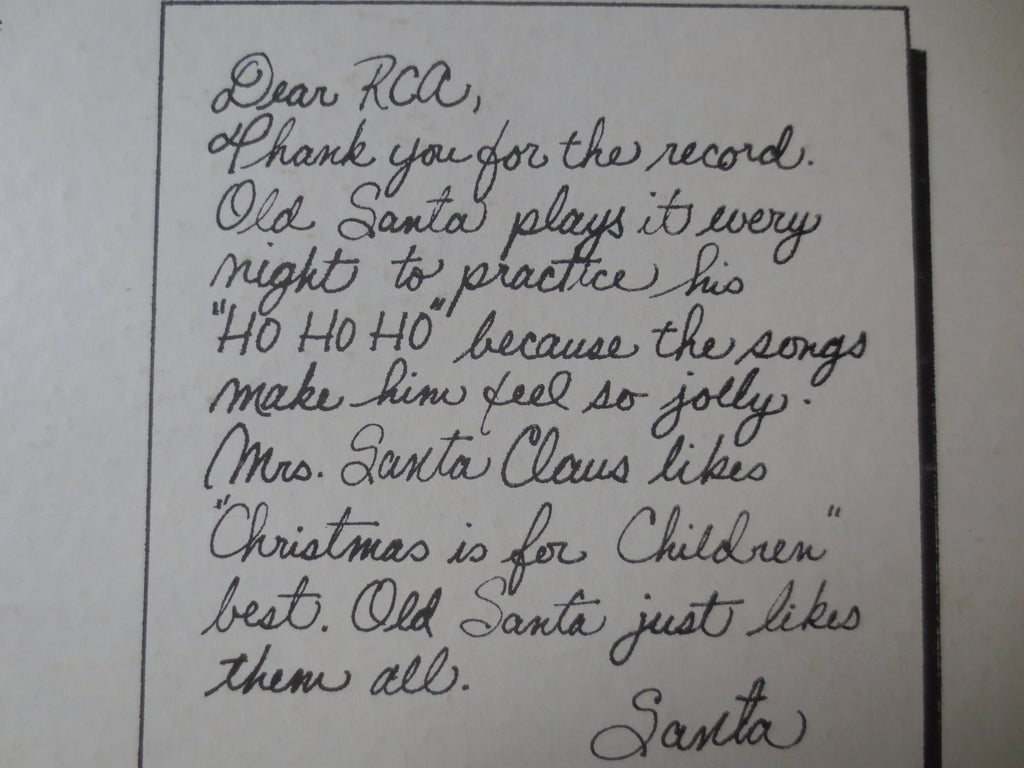 Dear RCA,
Thank you for the record.
Old Santa plays it every
night to practice his
"HO HO HO" because the songs
make him feel so jolly.
Mrs. Santa Claus likes
"Christmas is for Children"
best. Old Santa just likes
them all.
Santa